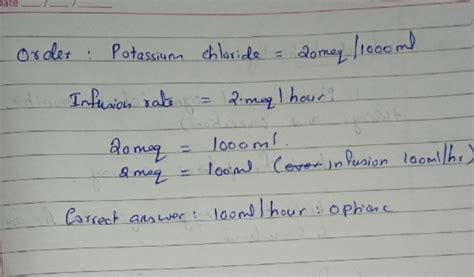 ate / /
Order : Potassium chloride = 20meq/1000ml
Infusion rate = 2.meq/hour.
20meq = 1000ml.
2meq = 100ml (over infusion 100ml/hr)
Correct answer : 100ml/hour : option c